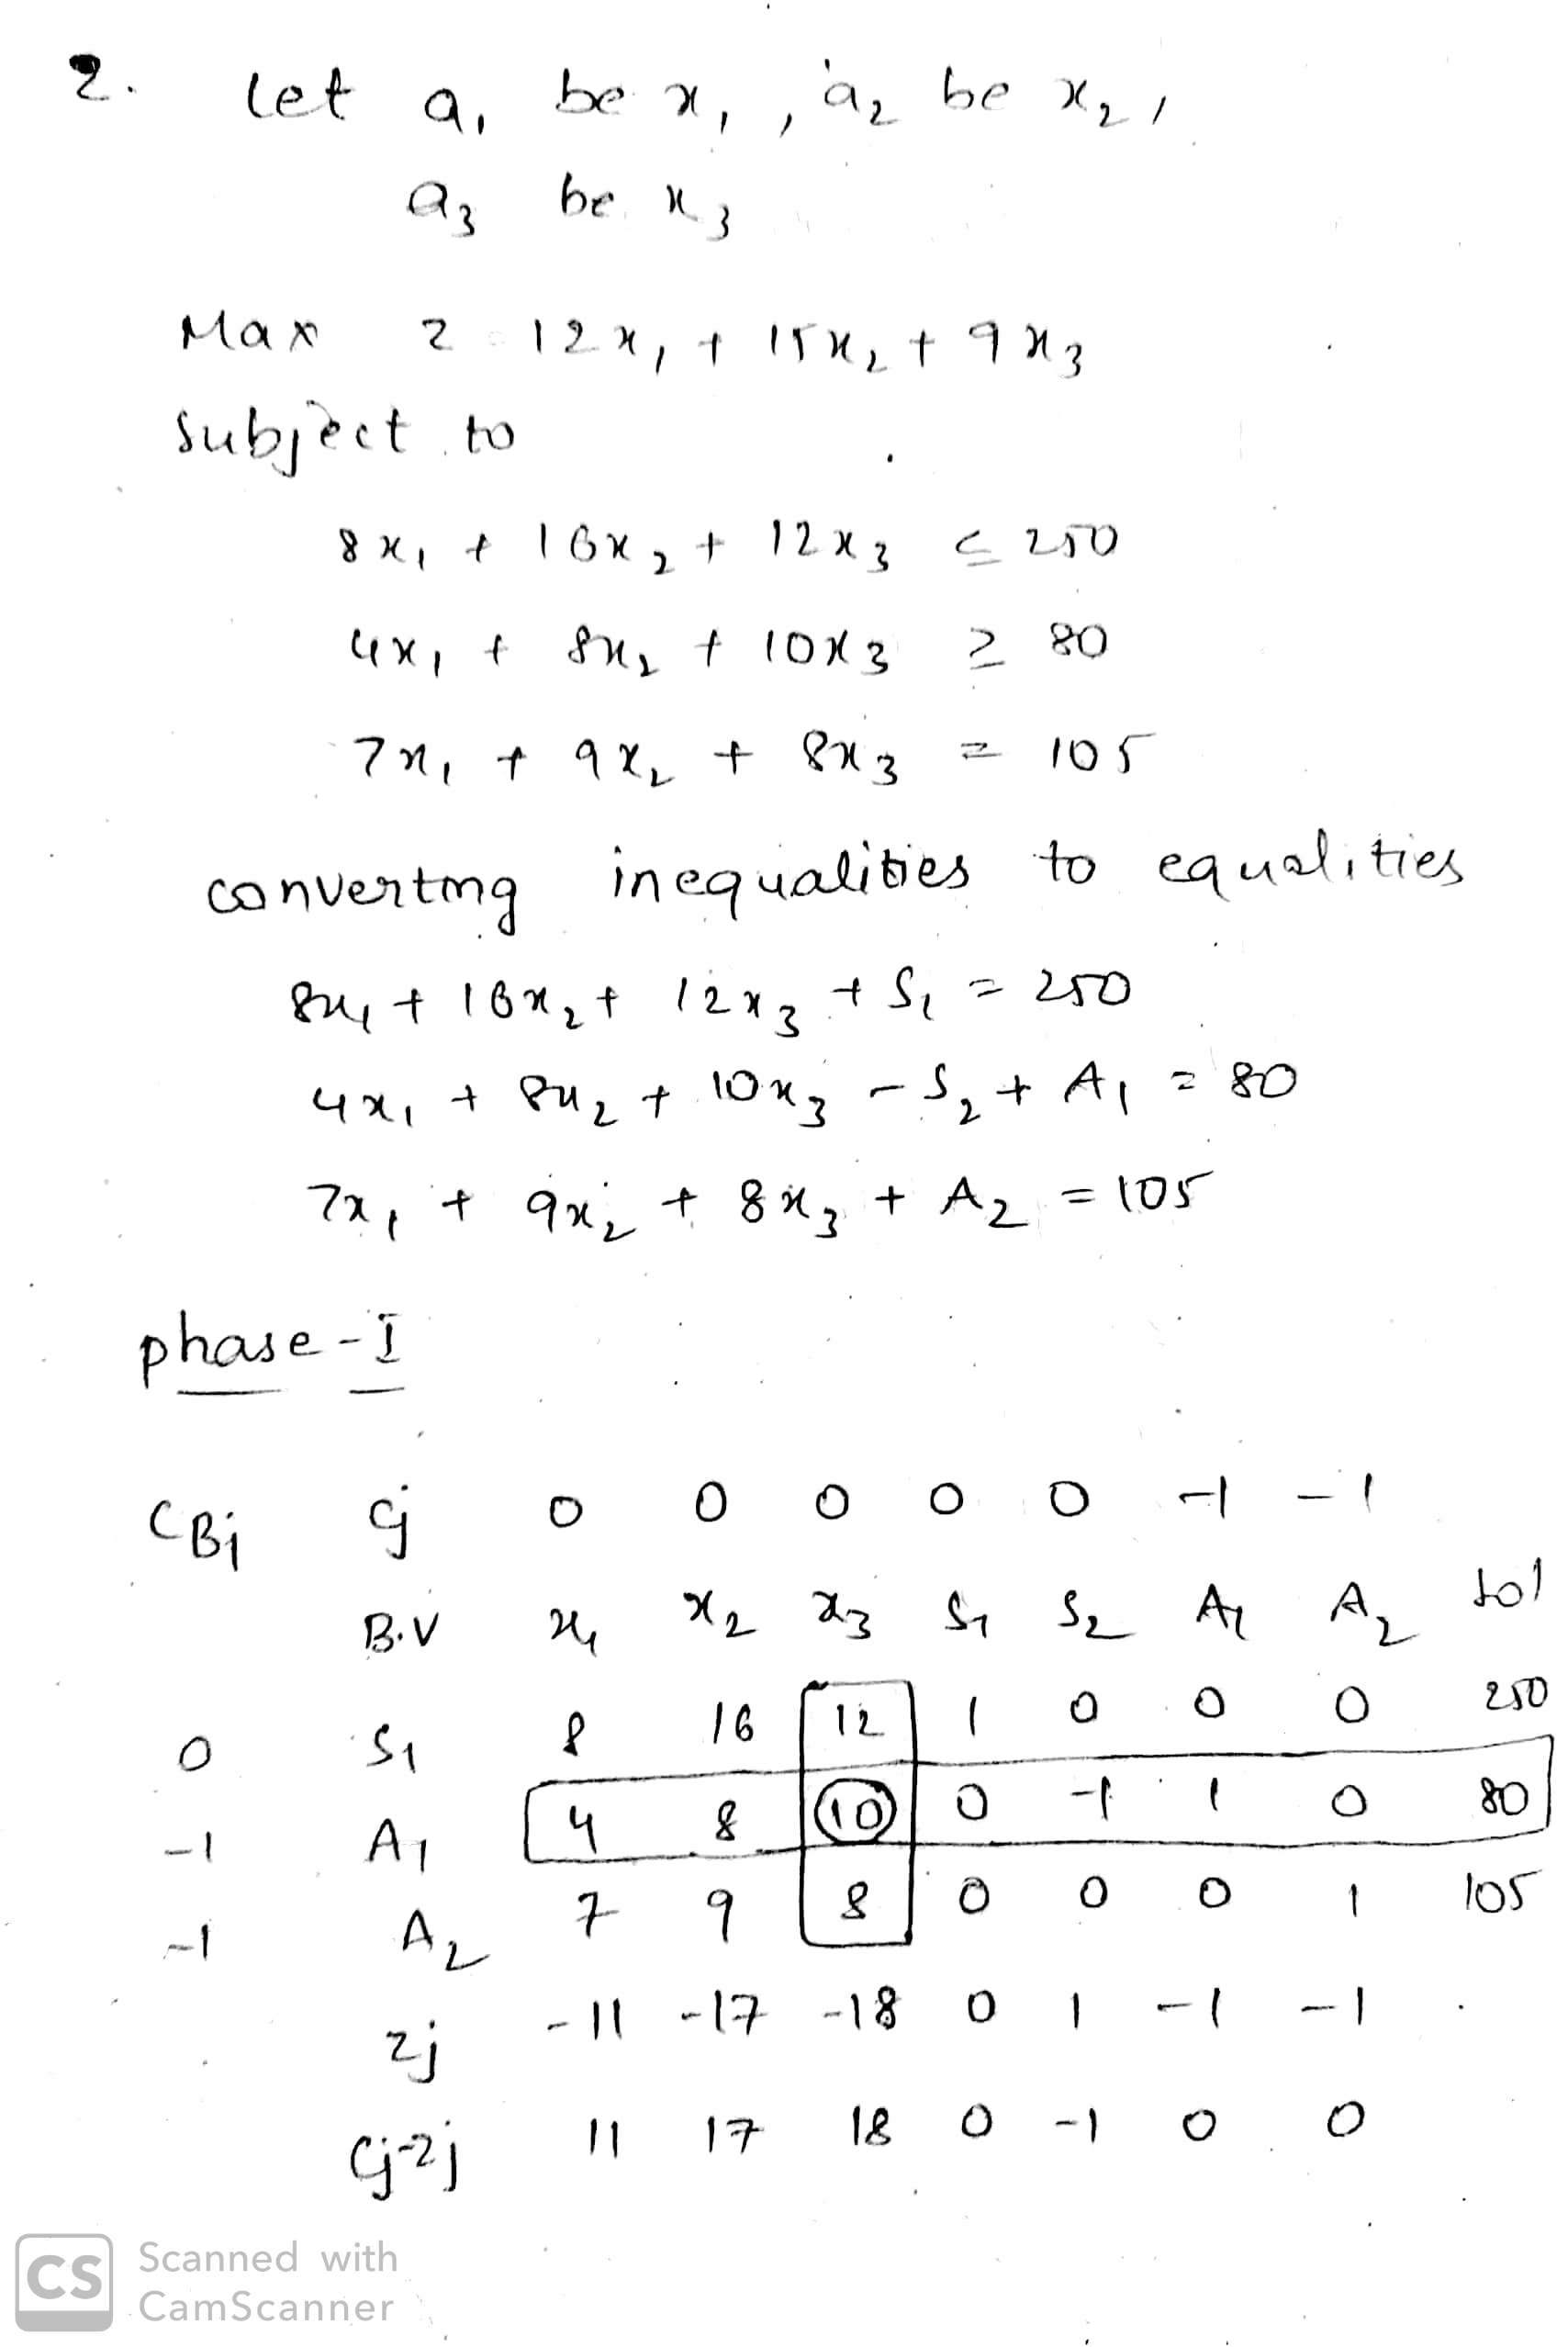 2. let a₁ be x₁, a₂ be x₂,
a₃ be x₃
Max z = 12x₁ + 15x₂ + 9x₃
Subject to
8x₁ + 16x₂ + 12x₃ ≤ 250
4x₁ + 8x₂ + 10x₃ ≥ 80
7x₁ + 9x₂ + 8x₃ = 105
converting inequalities to equalities
8x₁ + 16x₂ + 12x₃ + S₁ = 250
4x₁ + 8x₂ + 10x₃ - S₂ + A₁ = 80
7x₁ + 9x₂ + 8x₃ + A₂ = 105
phase-I
CBi Cj 0 0 0 0 0 -1 -1
B.V x₁ x₂ x₃ S₁ S₂ A₁ A₂ Sol
0 S₁ 8 16 12 1 0 0 0 250
-1 A₁ 4 8 10 0 -1 1 0 80
-1 A₂ 7 9 8 0 0 0 1 105
zj -11 -17 -18 0 1 -1 -1
Cj-zj 11 17 18 0 -1 0 0
CS Scanned with
CamScanner